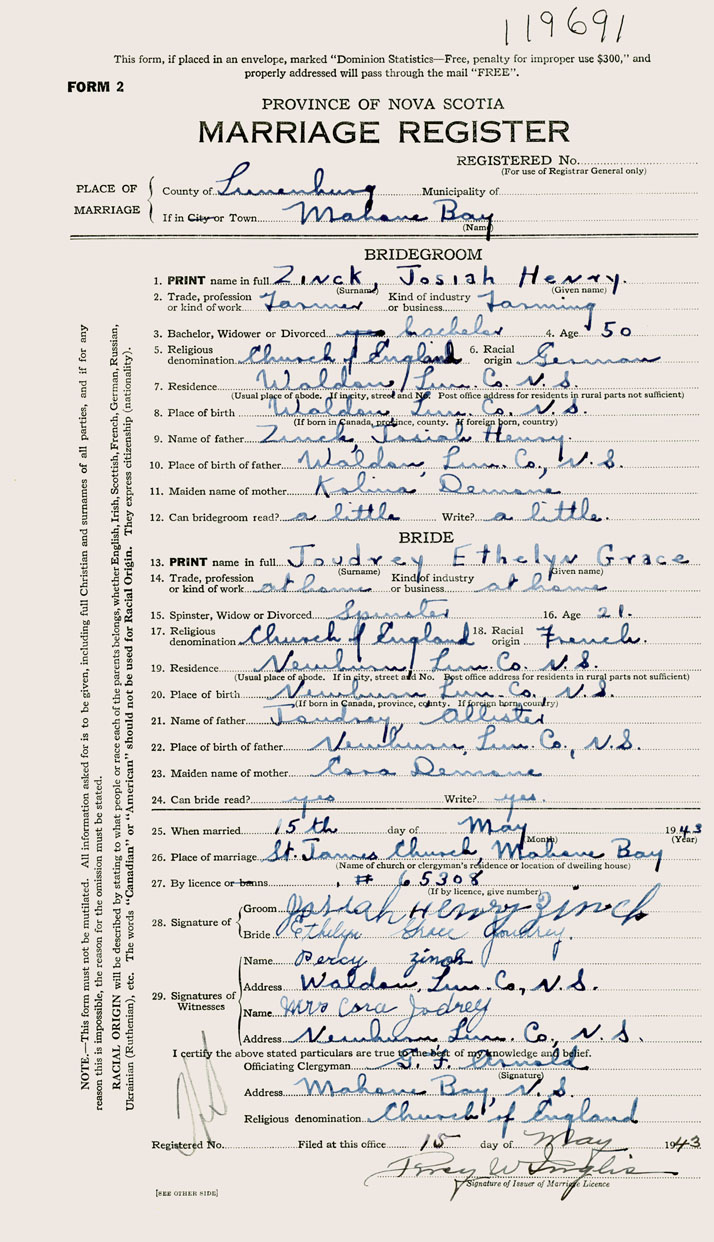 119691
This form, if placed in an envelope, marked "Dominion Statistics—Free, penalty for improper use $300," and
properly addressed will pass through the mail "FREE".
FORM 2
PROVINCE OF NOVA SCOTIA
MARRIAGE REGISTER
REGISTERED No.
(For use of Registrar General only)
PLACE OF MARRIAGE
County of Lunenburg Municipality of
If in City or Town Mahone Bay
(Name)
BRIDEGROOM
1. PRINT name in full Zinck, Josiah Henry.
(Surname) (Given name)
2. Trade, profession or kind of work Farmer Kind of industry or business Farming
3. Bachelor, Widower or Divorced bachelor 4. Age 50
5. Religious denomination Church of England 6. Racial origin German
7. Residence Walden, Lun. Co. N.S.
(Usual place of abode. If in city, street and No. Post office address for residents in rural parts not sufficient)
8. Place of birth Walden, Lun. Co. N.S.
(If born in Canada, province, county. If foreign born, country)
9. Name of father Zinck, Josiah Henry.
10. Place of birth of father Walden, Lun. Co., N.S.
11. Maiden name of mother Kalina Demone
12. Can bridegroom read? a little Write? a little.
BRIDE
13. PRINT name in full Joudrey Ethelyn Grace
(Surname) (Given name)
14. Trade, profession or kind of work at home Kind of industry or business at home
15. Spinster, Widow or Divorced Spinster 16. Age 21.
17. Religious denomination Church of England 18. Racial origin French.
19. Residence Newburn, Lun. Co. N.S.
(Usual place of abode. If in city, street and No. Post office address for residents in rural parts not sufficient)
20. Place of birth Newburn Lun. Co., N.S.
(If born in Canada, province, county. If foreign born, country)
21. Name of father Joudrey, Allister
22. Place of birth of father Newburn, Lun. Co., N.S.
23. Maiden name of mother Cora Demone
24. Can bride read? yes Write? yes.
25. When married 15th day of May 1943
(Month) (Year)
26. Place of marriage St. James Church, Mahone Bay
(Name of church or clergyman's residence or location of dwelling house)
27. By licence or banns # 65308
(If by licence, give number)
28. Signature of
Groom Josiah Henry Zinck
Bride Ethelyn Grace Joudrey.
29. Signatures of Witnesses
Name Percy Zinck
Address Walden, Lun. Co., N.S.
Name Mrs Cora Jodrey
Address Newburn Lun. Co., N.S.
I certify the above stated particulars are true to the best of my knowledge and belief.
Officiating Clergyman G. F. Arnold
(Signature)
Address Mahone Bay, N.S.
Religious denomination Church of England
Registered No. Filed at this office 15 day of May 1943
Percy W Inglis
Signature of Issuer of Marriage Licence
[SEE OTHER SIDE]
NOTE.—This form must not be mutilated. All information asked for is to be given, including full Christian and surnames of all parties, and if for any
reason this is impossible, the reason for the omission must be stated.
RACIAL ORIGIN will be described by stating to what people or race each of the parents belongs, whether English, Irish, Scottish, French, German, Russian,
Ukrainian (Ruthenian), etc. The words "Canadian" or "American" should not be used for Racial Origin. They express citizenship (nationality).